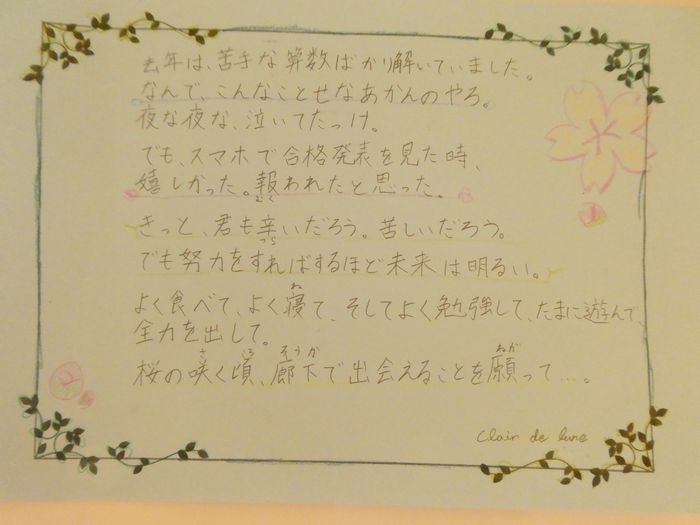 去年は、苦手な算数ばかり解いていました。
なんで、こんなことせなあかんのやろ。
夜な夜な、泣いてたっけ。
でも、スマホで合格発表を見た時、
嬉しかった。報われたと思った。
むく
きっと、君も辛いだろう。苦しいだろう。
つら
でも努力をすればするほど未来は明るい。
ね
よく食べて、よく寝て、そしてよく勉強して、たまに遊んで、
全力を出して。
さ ころ ろうか ねが
桜の咲く頃、廊下で出会えることを願って…。
Clair de lune